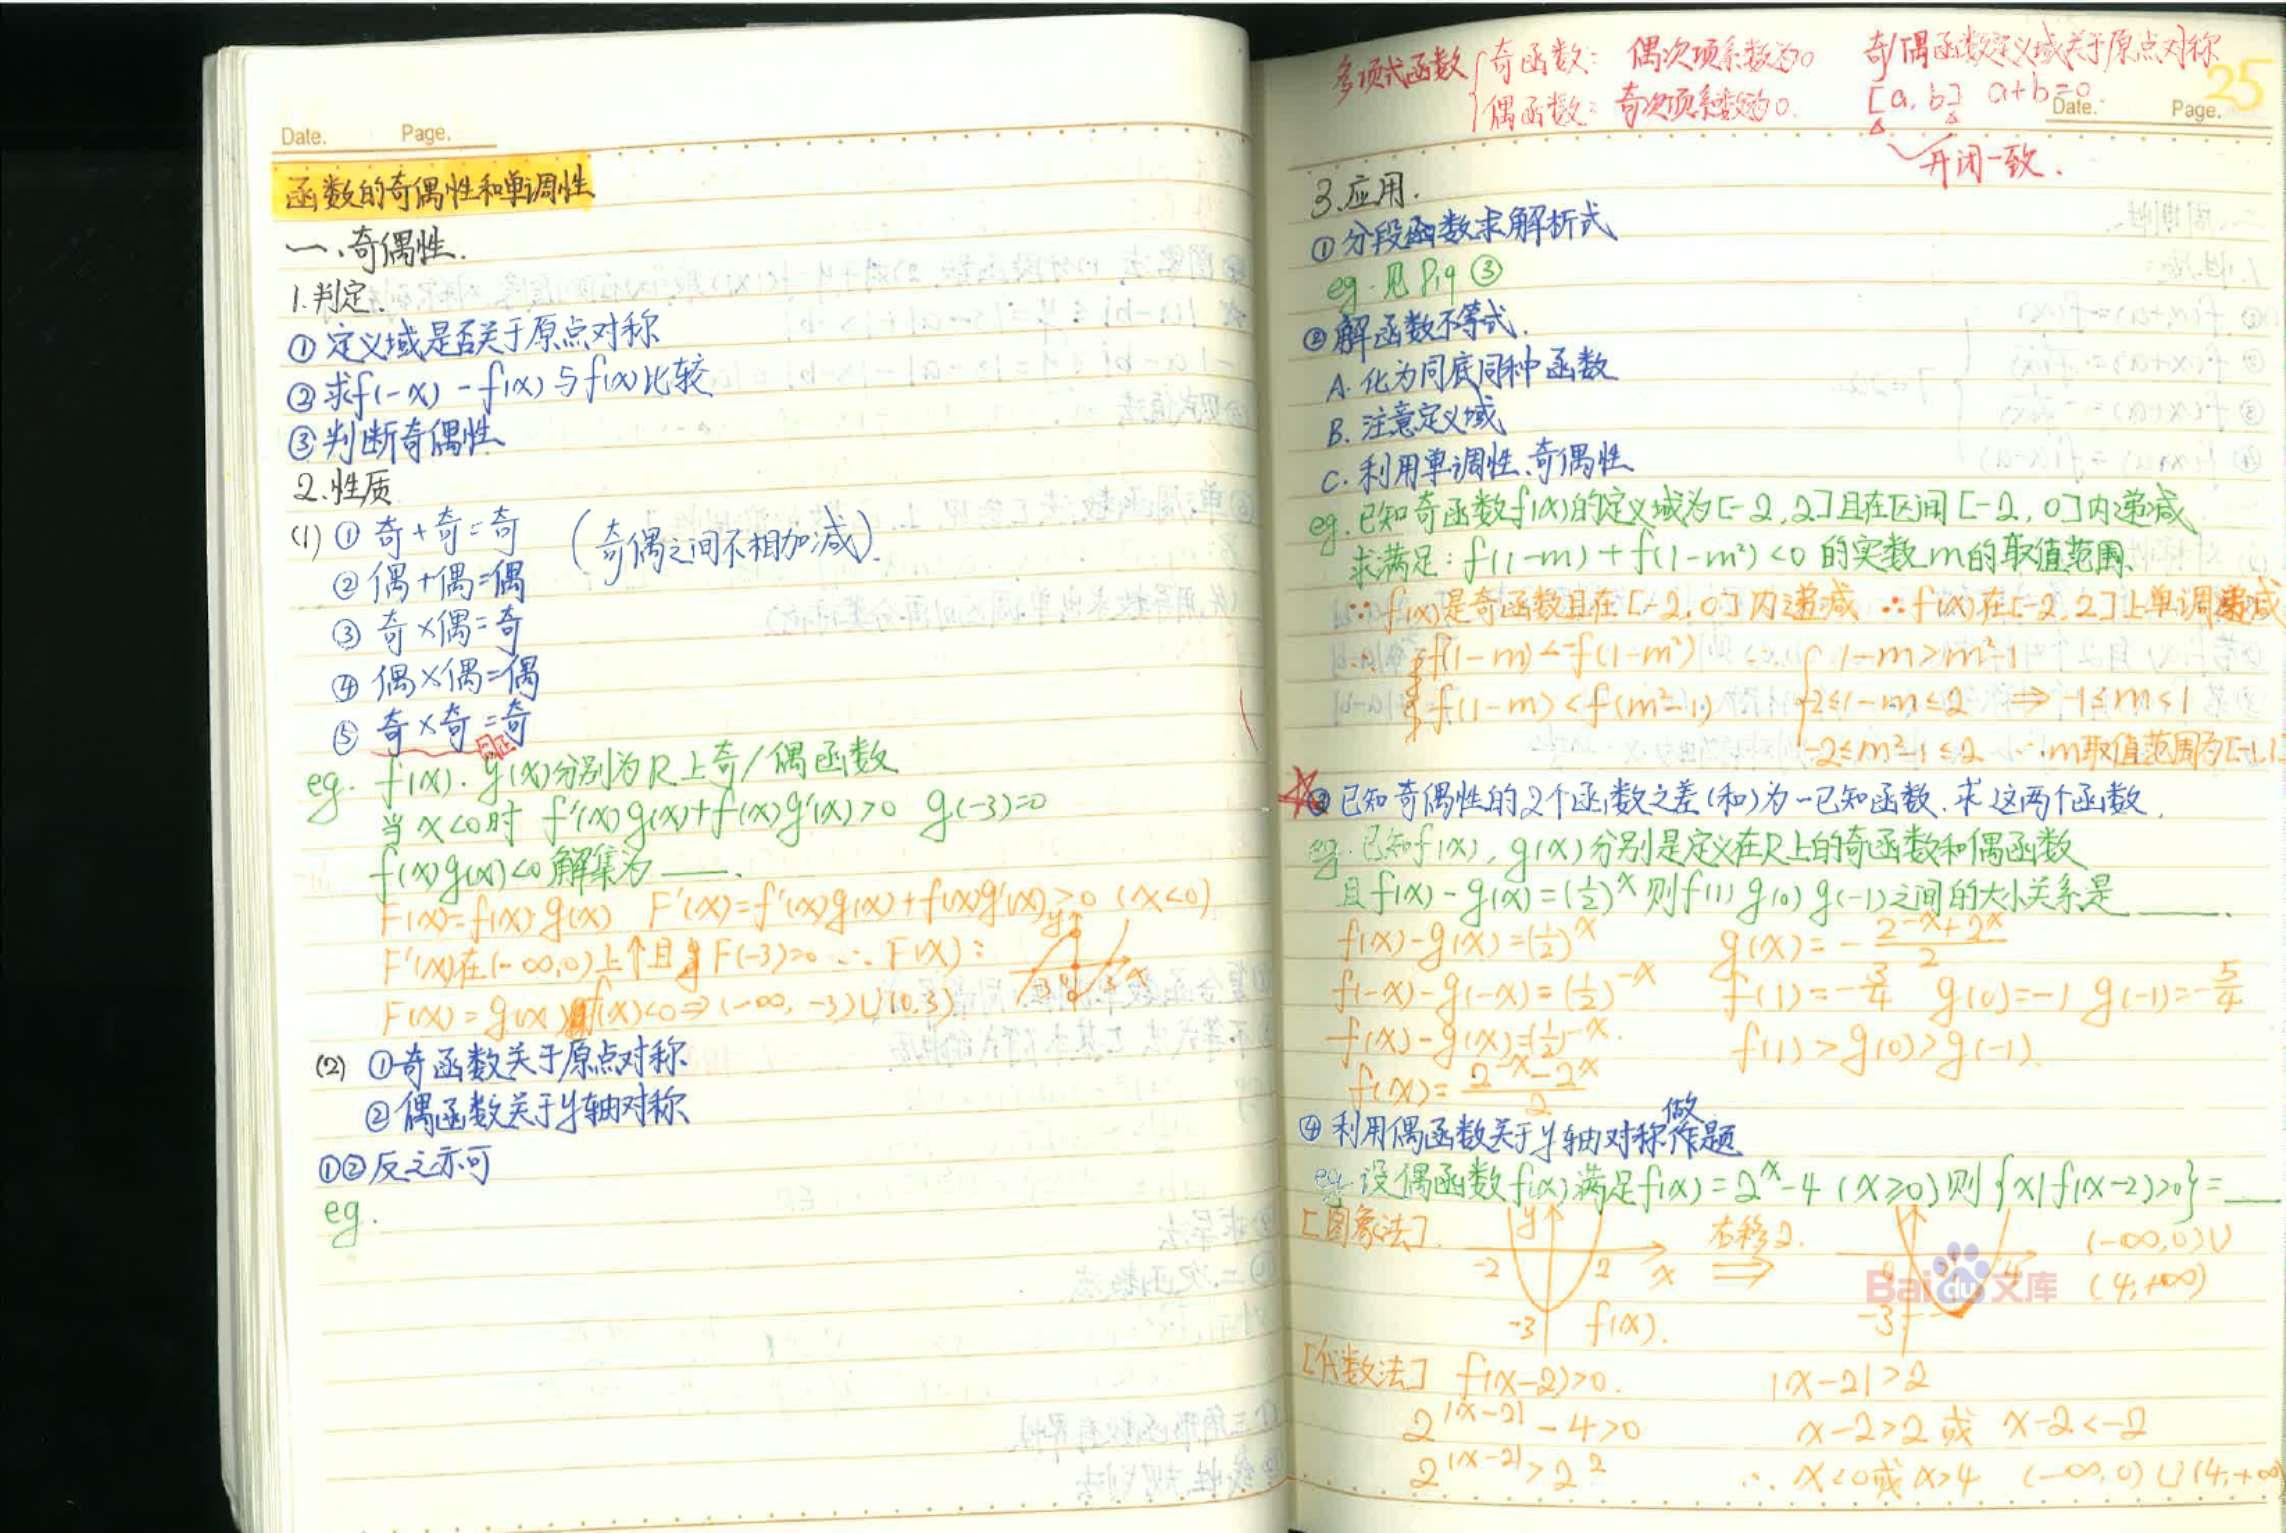 Date. Page.
函数的奇偶性和单调性
一、奇偶性.
1.判定.
① 定义域是否关于原点对称
② 求f(-x) -f(x)与f(x)比较
③ 判断奇偶性
2.性质
(1) ① 奇+奇=奇 (奇偶之间不相加减).
② 偶+偶=偶
③ 奇×偶=奇
④ 偶×偶=偶
⑤ 奇×奇=奇
eg. f(x). g(x)分别为R上奇/偶函数
当x<0时 f'(x)g(x)+f(x)g'(x)>0 g(-3)=0
f(x)g(x)<0解集为___.
F(x)=f(x)g(x) F'(x)=f'(x)g(x)+f(x)g'(x)>0 (x<0)
F'(x)在(-∞,0)上↑且 F(-3)=0 ∴F(x):
F(x)=g(x)f(x)<0⇒(-∞,-3)∪(0,3)
(2) ①奇函数关于原点对称
②偶函数关于y轴对称
①②反之亦可
eg.
多项式函数{奇函数: 偶次项系数为0
偶函数: 奇次项系数为0.
奇/偶函数定义域关于原点对称
[a,b] a+b=0
开闭一致.
25
Date. Page.
3.应用.
①分段函数求解析式
eg.见P19 ③
②解函数不等式.
A.化为同底同种函数
B.注意定义域
C.利用单调性、奇偶性
eg.已知奇函数f(x)的定义域为[-2,2]且在区间[-2,0]内递减
求满足:f(1-m)+f(1-m²)<0的实数m的取值范围.
∵f(x)是奇函数且在[-2,0]内递减 ∴f(x)在[-2,2]上单调递减
∴ f(1-m)<-f(1-m²) ∴{1-m>m²-1
f(1-m)<f(m²-1) -2≤1-m≤2 ⇒ -1≤m<1
-2≤m²-1≤2 ∴m取值范围为[-1,1)
③已知奇偶性的2个函数之差(和)为一已知函数.求这两个函数.
eg.已知f(x),g(x)分别是定义在R上的奇函数和偶函数
且f(x)-g(x)=(1/2)^x则f(1) g(0) g(-1)之间的大小关系是___.
f(x)-g(x)=(1/2)^x g(x)=-(2^-x+2^x)/2
f(-x)-g(-x)=(1/2)^-x f(1)=-3/4 g(0)=-1 g(-1)=-5/4
f(x)-g(x)=(1/2)^-x. f(1)>g(0)>g(-1).
f(x)=(2^-x-2^x)/2
④利用偶函数关于y轴对称做作题
eg.设偶函数f(x)满足f(x)=2^x-4(x≥0)则{x|f(x-2)>0}=___
[图象法]. y 右移2. (-∞,0)∪
-2 2 x ⇒ 0 4 (4,+∞)
-3 f(x). -3
Baidu文库
[代数法] f(x-2)>0. |x-2|>2
2^|x-2|-4>0 x-2>2或 x-2<-2
2^|x-2|>2² ∴x<0或x>4 (-∞,0)∪(4,+∞)